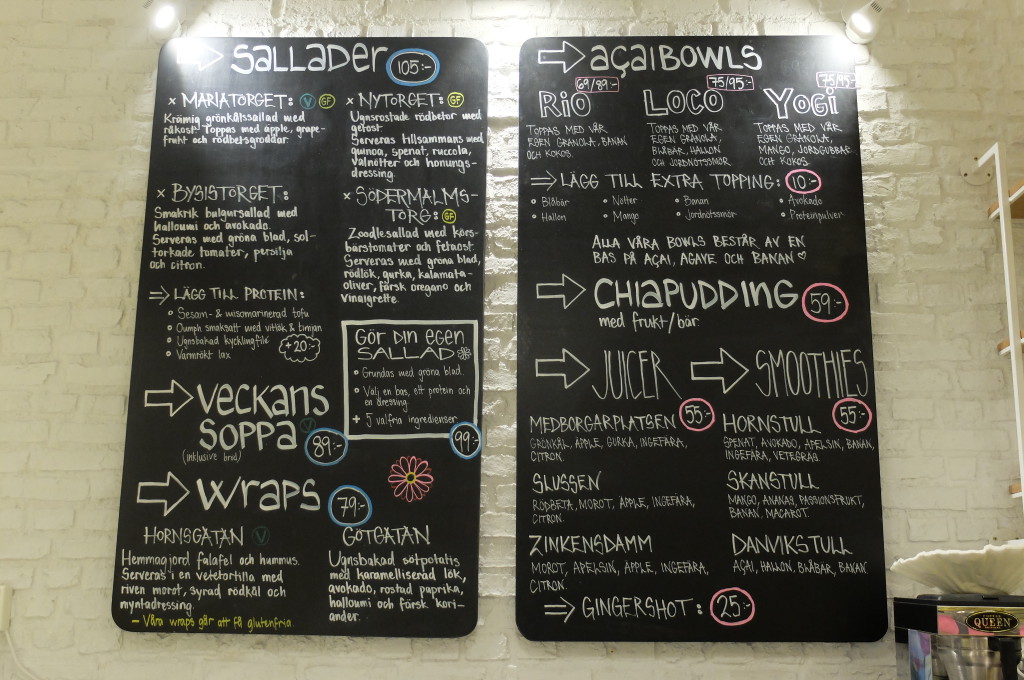 ⇒ SALLADER 105:-
× MARIATORGET: V GF
Krämig grönkålssallad med
råkost. Toppas med äpple, grape-
frukt och rödbetsgroddar.
× NYTORGET: GF
Ugnsrostade rödbetor med
getost.
Serveras tillsammans med
quinoa, spenat, ruccola,
valnötter och honungs-
dressing.
× BYSISTORGET:
Smakrik bulgursallad med
halloumi och avokado.
Serveras med gröna blad, sol-
torkade tomater, persilja
och citron.
× SÖDERMALMS-
TORG: GF
Zoodlesallad med körs-
bärstomater och fetaost.
Serveras med gröna blad,
rödlök, gurka, kalamata-
oliver, färsk oregano och
vinaigrette.
⇒ LÄGG TILL PROTEIN:
Sesam- & misomarinerad tofu
Oumph smaksatt med vitlök & timjan
Ugnsbakad kycklingfilé
Varmrökt lax
+20:-
GÖR DIN EGEN
SALLAD
Grundas med gröna blad.
Välj en bas, ett protein och
en dressing.
+ 5 valfria ingredienser
99:-
⇒ VECKANS
SOPPA V
(inklusive bröd)
89:-
⇒ WRAPS 79:-
HORNSGATAN V
Hemmagjord falafel och hummus.
Serveras i en vetetortilla med
riven morot, syrad rödkål och
myntadressing.
GÖTGATAN
Ugnsbakad sötpotatis
med karamelliserad lök,
avokado, rostad paprika,
halloumi och färsk kori-
ander.
– Våra wraps går att få glutenfria.
⇒ AÇAIBOWLS
69/89:- 75/95:- 75/95:-
RIO LOCO YOGI
TOPPAS MED VÅR
EGEN GRANOLA, BANAN
OCH KOKOS.
TOPPAS MED VÅR
EGEN GRANOLA,
BLÅBÄR, HALLON
OCH JORDNÖTSSMÖR
TOPPAS MED VÅR
EGEN GRANOLA,
MANGO, JORDGUBBAR
OCH KOKOS.
⇒ LÄGG TILL EXTRA TOPPING: 10:-
Blåbär Nötter Banan Avokado
Hallon Mango Jordnötssmör Proteinpulver
ALLA VÅRA BOWLS BESTÅR AV EN
BAS PÅ AÇAI, AGAVE OCH BANAN ♡
⇒ CHIAPUDDING 59:-
med frukt/bär
⇒ JUICER 55:-
MEDBORGARPLATSEN
GRÖNKÅL, ÄPPLE, GURKA, INGEFÄRA,
CITRON.
SLUSSEN
RÖDBETA, MOROT, ÄPPLE, INGEFÄRA,
CITRON.
ZINKENSDAMM
MOROT, APELSIN, ÄPPLE, INGEFÄRA,
CITRON.
⇒ SMOOTHIES 55:-
HORNSTULL
SPENAT, AVOKADO, APELSIN, BANAN,
INGEFÄRA, VETEGRÄS.
SKANSTULL
MANGO, ANANAS, PASSIONSFRUKT,
BANAN, MACAROT.
DANVIKSTULL
AÇAI, HALLON, BLÅBÄR, BANAN
⇒ GINGERSHOT: 25:-
QUEEN